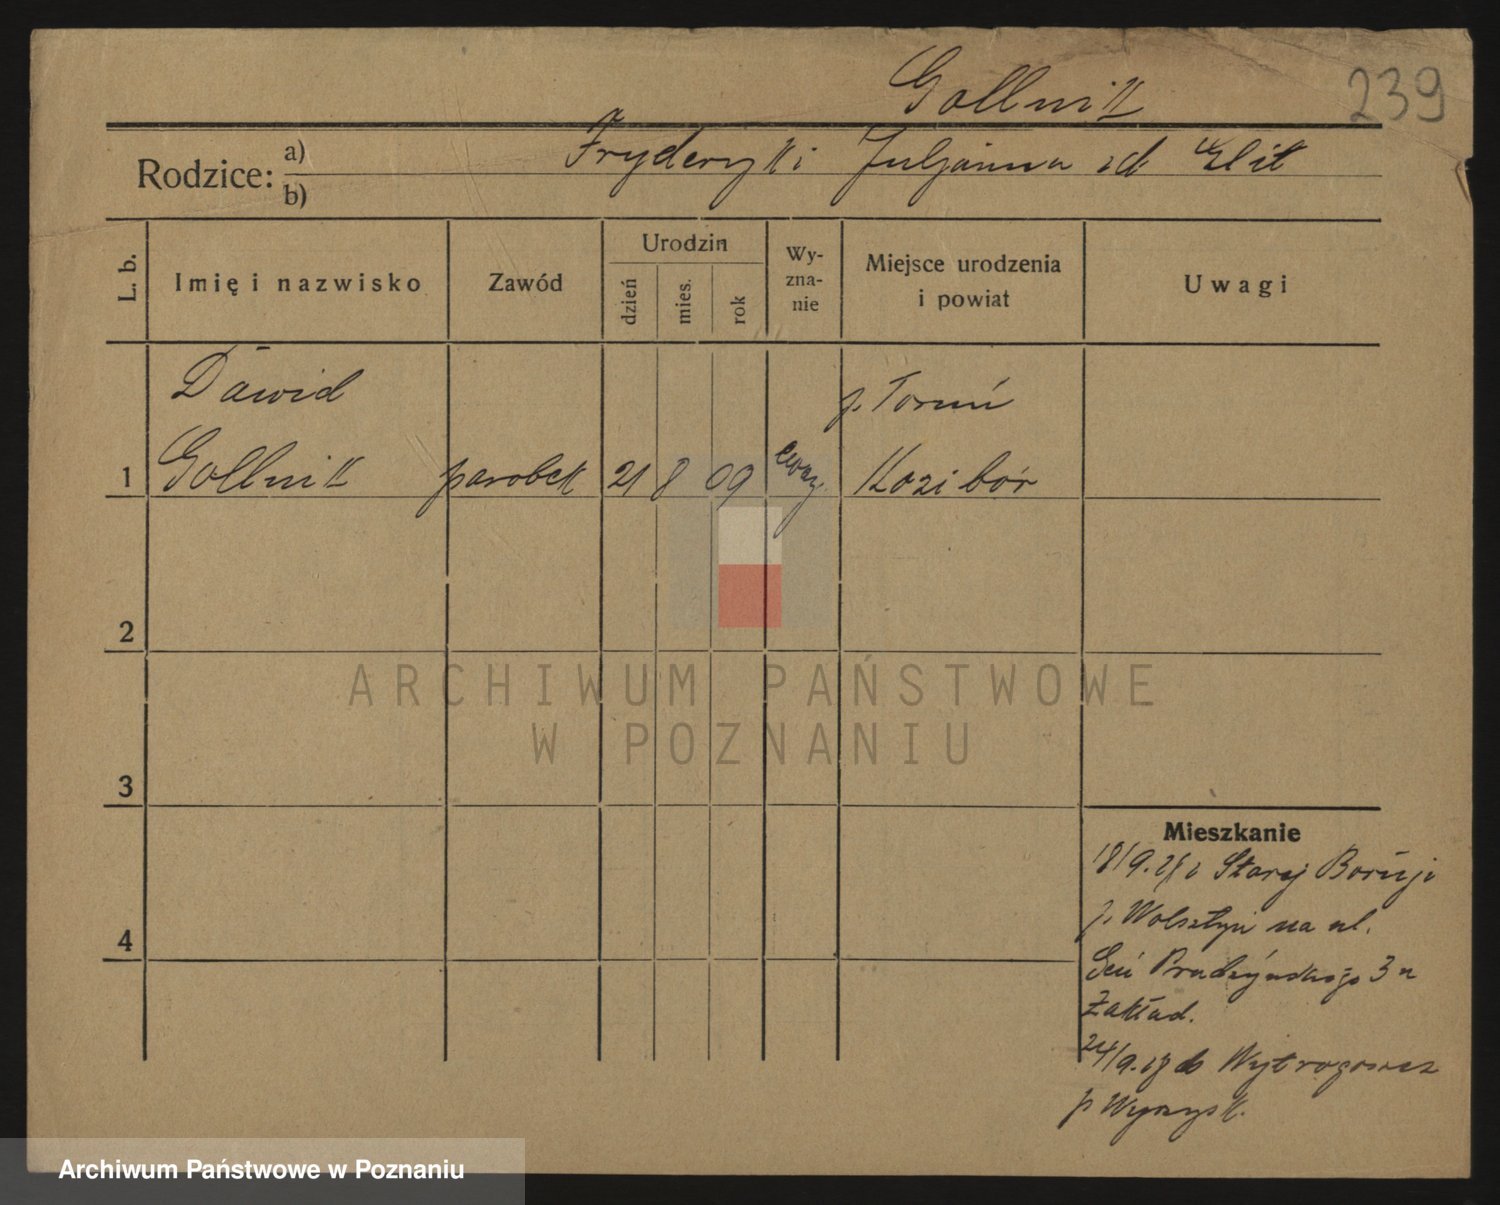 Gollnik
239
Rodzice:
a)
Fryderyk i Juljanna zd
b)
L. b.
Imię i nazwisko
Zawód
Urodzin
dzień
mies.
rok
Wy-
zna-
nie
Miejsce urodzenia
i powiat
Uwagi
Dawid
p. Toruń
1
Gollnik
parobek
21
8
09
ewag.
Kozibór
2
ARCHIWUM PAŃSTWOWE
W POZNANIU
3
Mieszkanie
18/9.28 z Starej Boruji
p. Wolsztyn na ul.
Prądzyńskiego 3 a
Zakład.
4
24/9.28 do
p Wyrzysk.
Archiwum Państwowe w Poznaniu